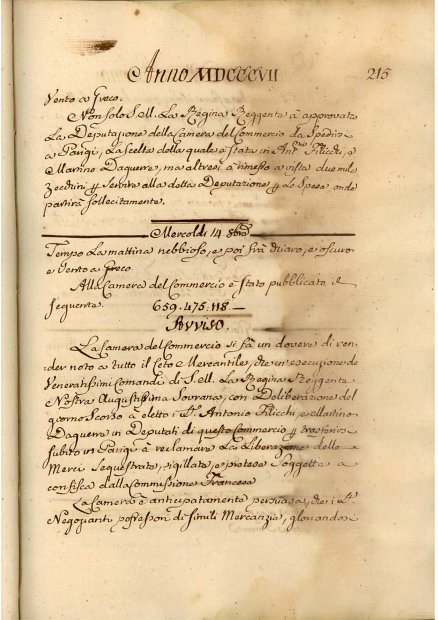 Anno MDCCCVII 215
Vento a Greco.
Non solo S. M. La Regina Reggente à approvato
La Deputazione della Camera del Commercio da Spedirsi
a Parigi, La scelta della quale è stata in Antº Filicchi, e
Martino Daguerre, ma altresì à rimesso a vista due mila
Zecchini p servire alla detta Deputazione p Le Spese onde
partirà sollecitamente.
Mercoldi 14 8bre
Tempo La mattina nebbioso, e poi frà chiaro, e oscuro
e Vento a Greco
Alla Camera del Commercio è stato pubblicato il
seguente. 659.475.118 —
Avviso.
La Camera del Commercio si fà un dovere di ren-
der noto a tutto il Ceto Mercantile, che in esecuzione de
Veneratissimi Comandi di S. M. La Regina Reggente
Nostra Augustissima Sovrana, con Deliberazione del
giorno Scorso à eletto i Sri Antonio Filicchi, e Martino
Daguerre in Deputati di questo Commercio p trasferirsi
subito in Parigi à reclamare La Liberazione delle
Merci Sequestrate, sigillate, e pretese Soggette a
confisca dalla Commissione Francese
La Camera è anticipatamente persuasa, che i Sri
Negozianti possessori di simili Mercanzie, gloriandosi